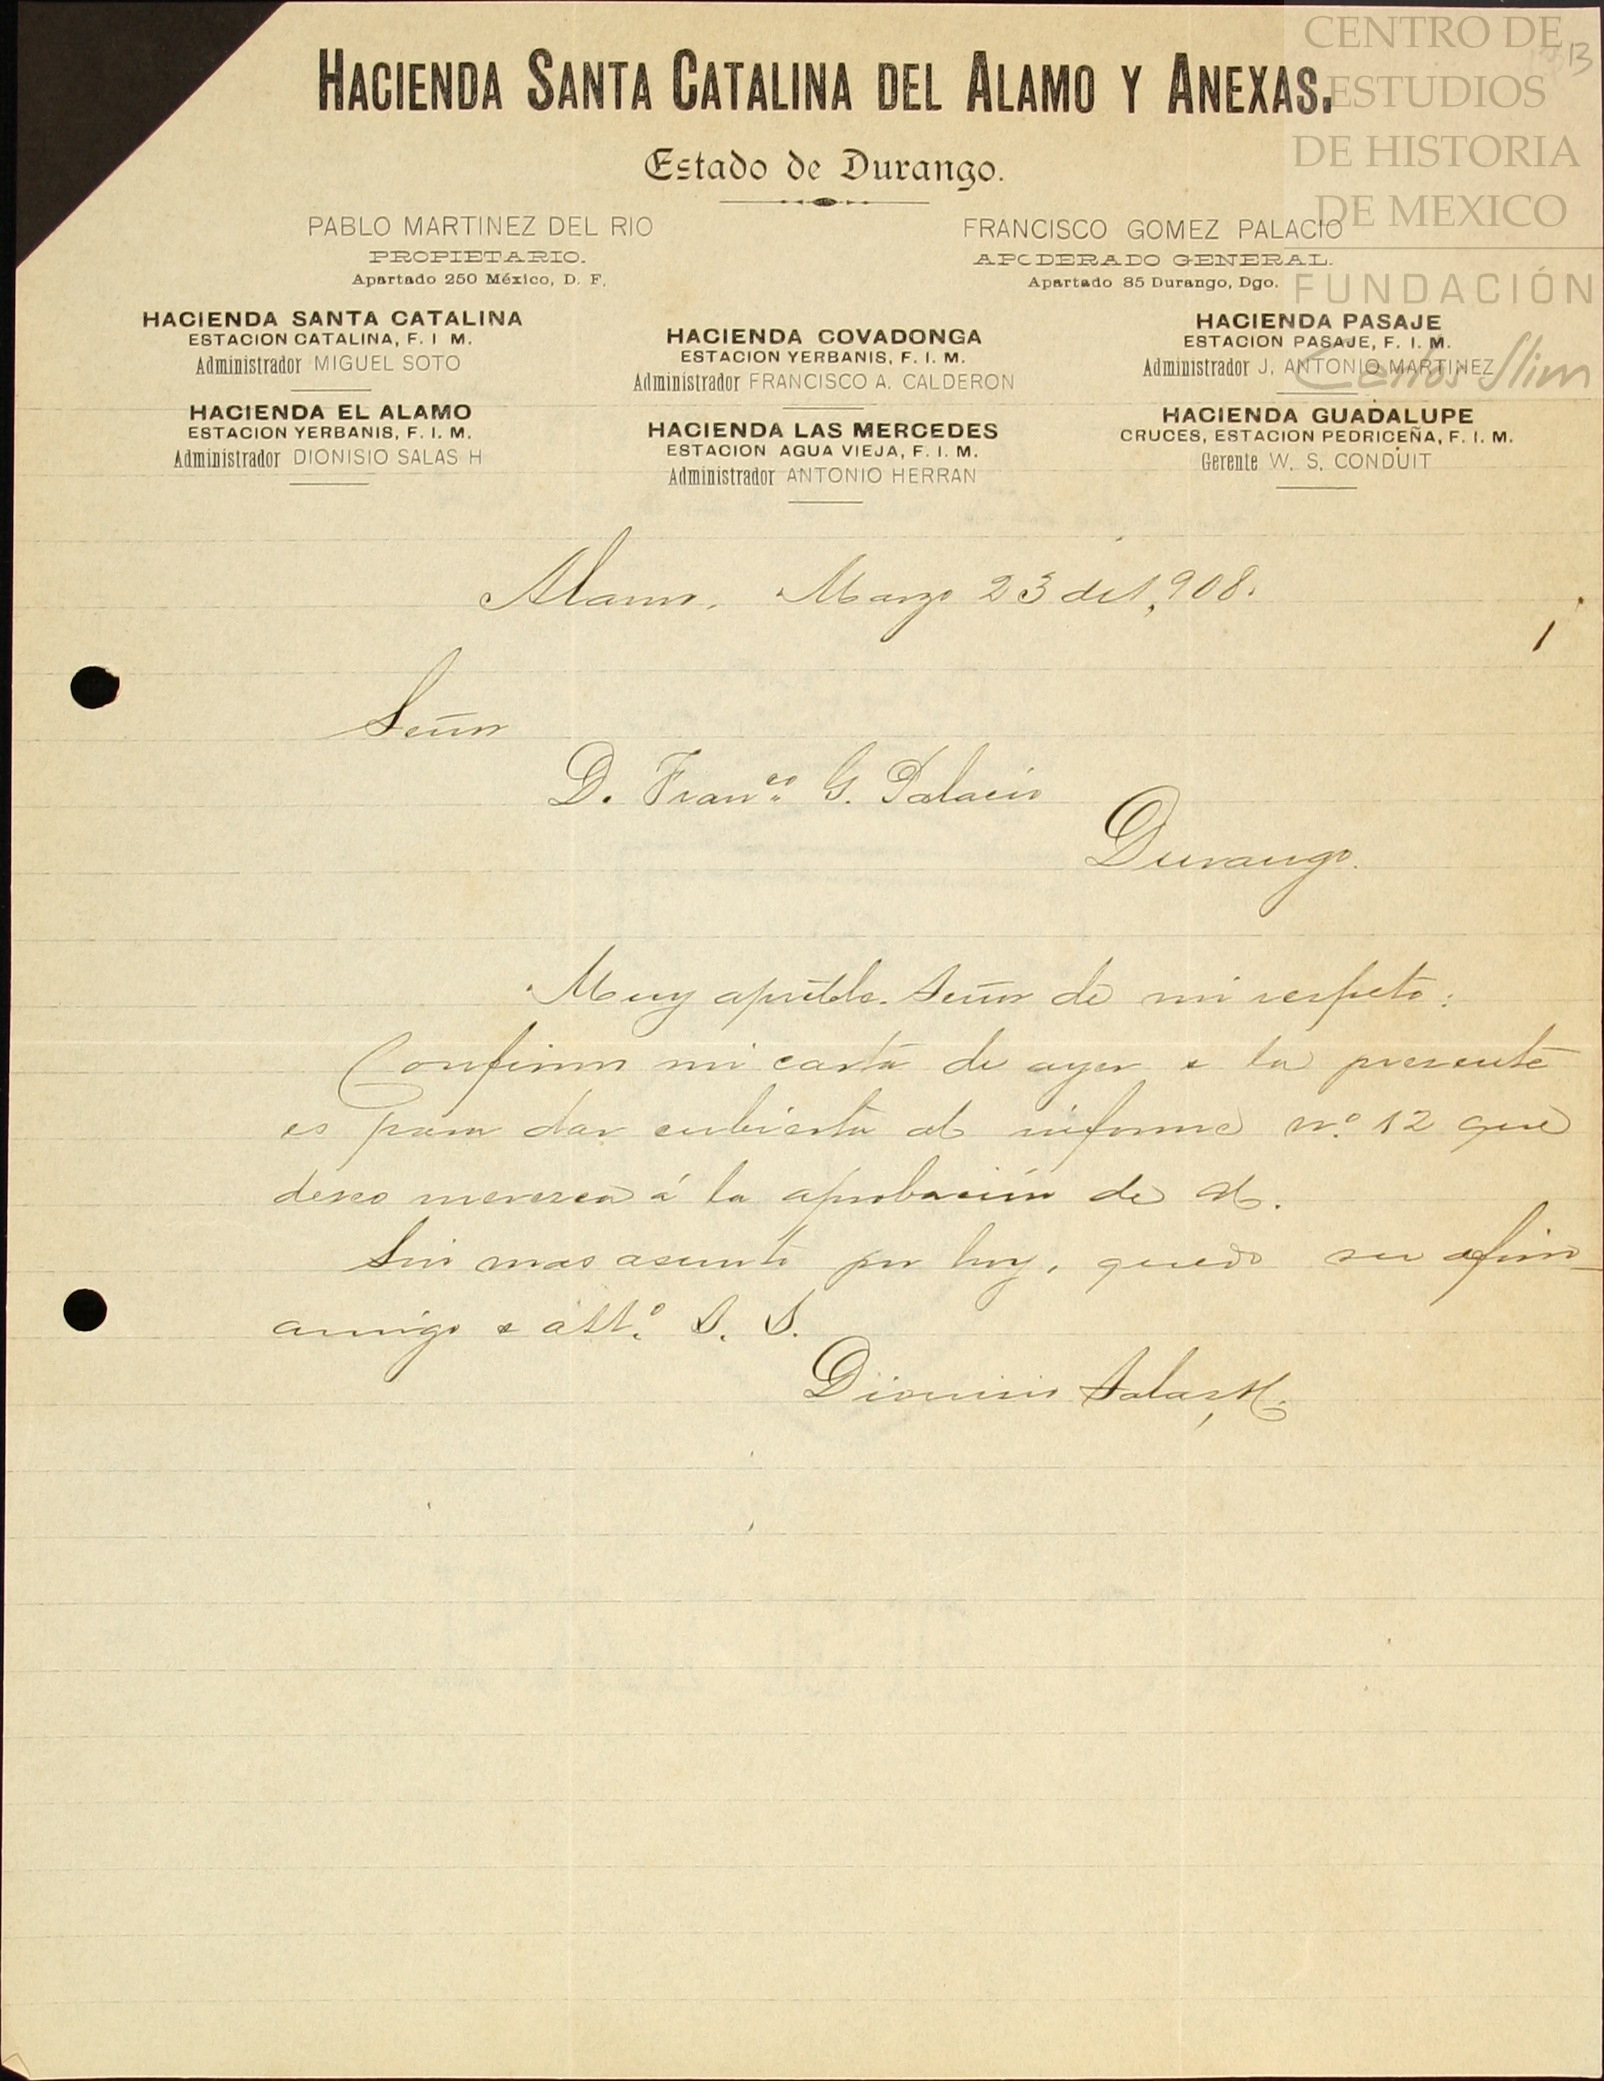 CENTRO DE
ESTUDIOS
DE HISTORIA
DE MEXICO
FUNDACIÓN
Carlos Slim
13
HACIENDA SANTA CATALINA DEL ALAMO Y ANEXAS.
Estado de Durango.
PABLO MARTINEZ DEL RIO
PROPIETARIO.
Apartado 250 México, D. F.
FRANCISCO GOMEZ PALACIO
APODERADO GENERAL.
Apartado 85 Durango, Dgo.
HACIENDA SANTA CATALINA
ESTACION CATALINA, F. I M.
Administrador MIGUEL SOTO
HACIENDA EL ALAMO
ESTACION YERBANIS, F. I. M.
Administrador DIONISIO SALAS H
HACIENDA COVADONGA
ESTACION YERBANIS, F. I. M.
Administrador FRANCISCO A. CALDERON
HACIENDA LAS MERCEDES
ESTACION AGUA VIEJA, F. I. M.
Administrador ANTONIO HERRAN
HACIENDA PASAJE
ESTACION PASAJE, F. I. M.
Administrador J. ANTONIO MARTINEZ
HACIENDA GUADALUPE
CRUCES, ESTACION PEDRICEÑA, F. I. M.
Gerente W. S. CONDUIT
Alamo, Marzo 23 de 1,908.
Señor
D. Franco. G. Palacio
Durango.
Muy apreible. Señor de mi respeto:
Confirmo mi carta de ayer e la presente
es para dar cubierta al informe no. 12 que
deseo merezca á la aprobación de Ud.
Sin mas asunto por hoy, quedo su afmo
amigo e atto. S. S.
Dionisio Salas H.